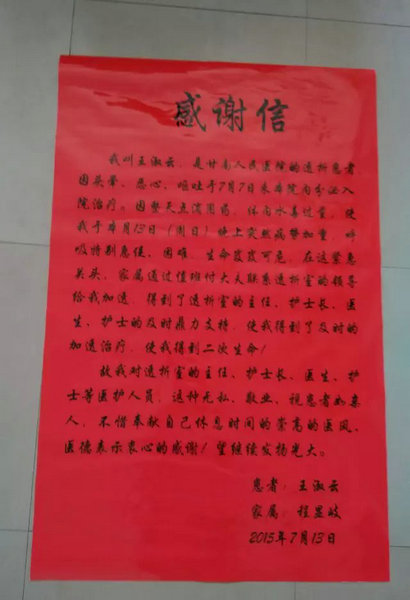 感谢信
我叫王淑云，是甘南人民医院的透析患者
因头晕、恶心、呕吐于7月7日来本院内分泌入
院治疗。因整天点滴用药，体内水毒过量，使
我于本月13日（周日）晚上突然病势加重，呼
吸特别急促、困难，生命岌岌可危，在这紧急
关头，家属通过值班付大夫联系透析室的领导
给我加透，得到了透析室的主任、护士长、医
生、护士的及时鼎力支持，使我得到了及时的
加透治疗，使我得到二次生命！
故我对透析室的主任、护士长、医生、护
士等医护人员，这种无私、敬业、视患者如亲
人，不惜奉献自己休息时间的崇高的医风、
医德表示衷心的感谢！望继续发扬光大。
患者：王淑云
家属：程显岐
2015年7月13日